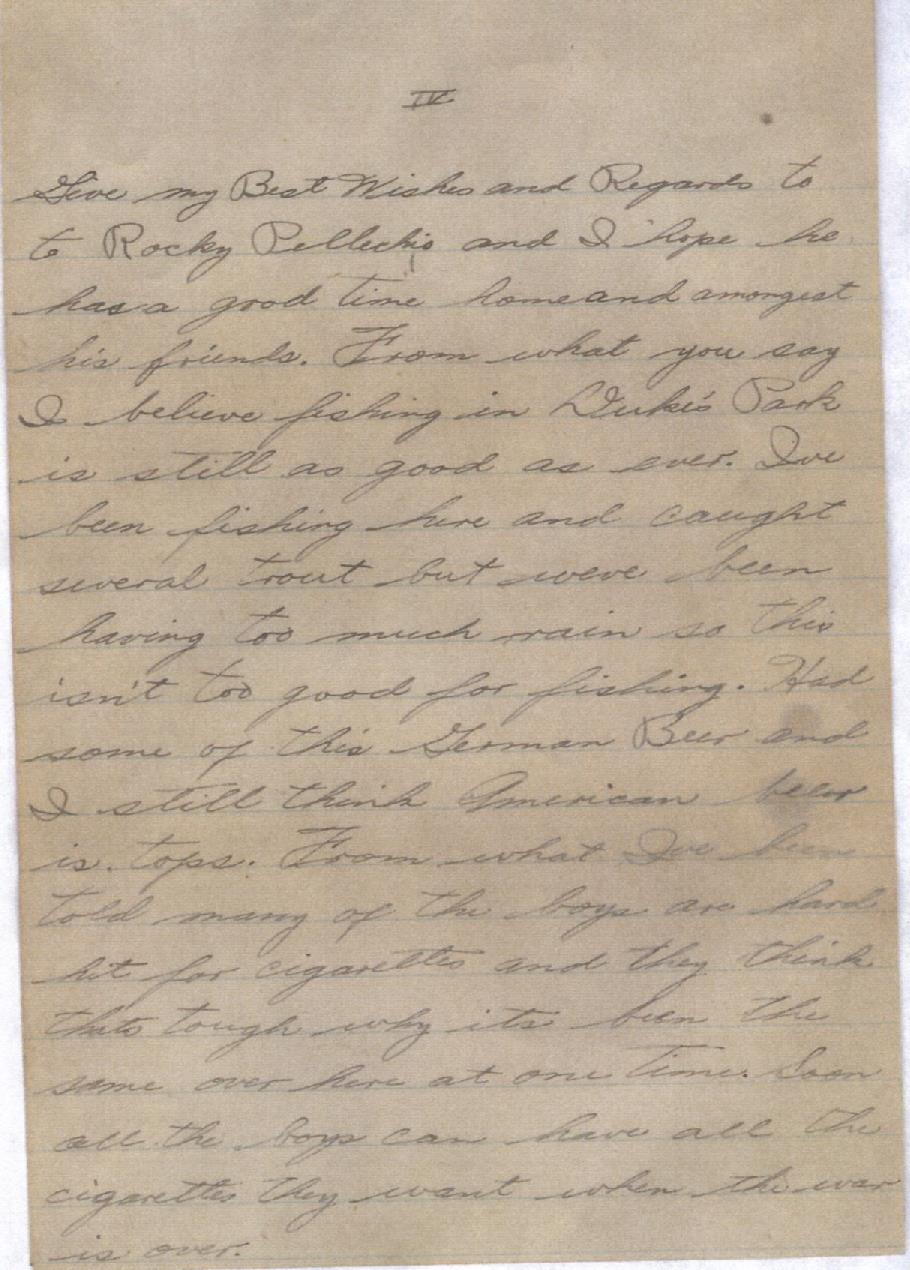 IV
Give my Best Wishes and Regards to
to Rocky Pellechio and I hope he
has a good time home and amongest
his friends. From what you say
I believe fishing in Duke's Park
is still as good as ever. Ive
been fishing here and caught
several trout but weve been
having too much rain so this
isn't too good for fishing. Had
some of this German Beer and
I still think American beer
is tops. From what Ive been
told many of the boys are hard
hit for cigarettes and they think
thats tough why its been the
same over here at one time. Soon
all the boys can have all the
cigarettes they want when the war
is over.